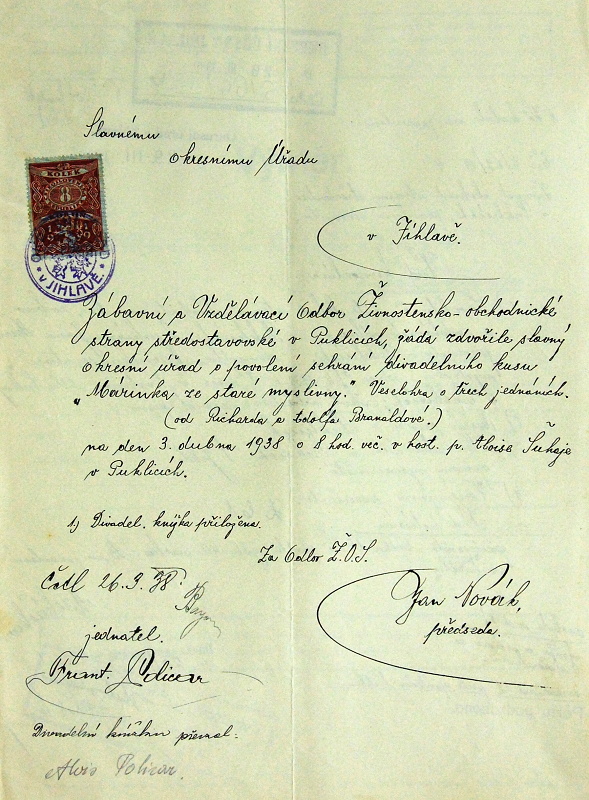 Slavnému
okresnímu Úřadu
KOLEK
8
v JIHLAVĚ
v Jihlavě.
Zábavní a Vzdělávací Odbor Živnostensko-obchodnické
strany středostavovské v Puklicích, žádá zdvořile slavný
okresní úřad o povolení sehrání divadelního kusu
„Márinka ze staré myslivny." Veselohra o třech jednáních.
(od Richarda a Adolfa Branaldové.)
na den 3. dubna 1938 o 8 hod. več. v host. p. Aloise Šuhaje
v Puklicích.
1) Divadel. knížka přiložena.
Za Odbor Ž.O.S.
26.3. 38.
Jan Novák,
předseda.
jednatel.
Frant. Policar
Divadelní knížku převzal:
Alois Policar.